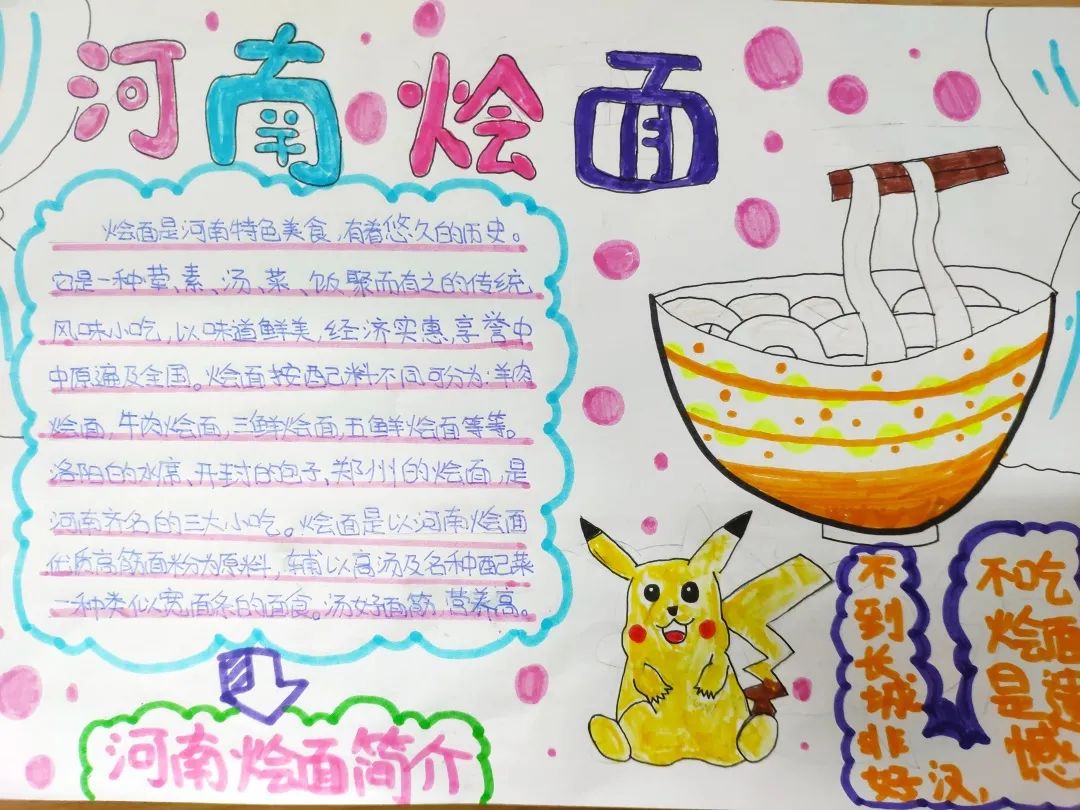 河南烩面
烩面是河南特色美食,有着悠久的历史。
它是一种荤、素、汤、菜、饭聚而有之的传统
风味小吃,以味道鲜美,经济实惠,享誉中
中原遍及全国。烩面按配料不同可分为:羊肉
烩面,牛肉烩面,三鲜烩面,五鲜烩面等等。
洛阳的水席、开封的包子、郑州的烩面,是
河南齐名的三大小吃。烩面是以河南烩面
优质高筋面粉为原料,辅以高汤及名种配菜
一种类似宽面条的面食。汤好面筋,营养高。
河南烩面简介
不
到
长
城
非
好汉,
不吃
烩面
是遗
憾